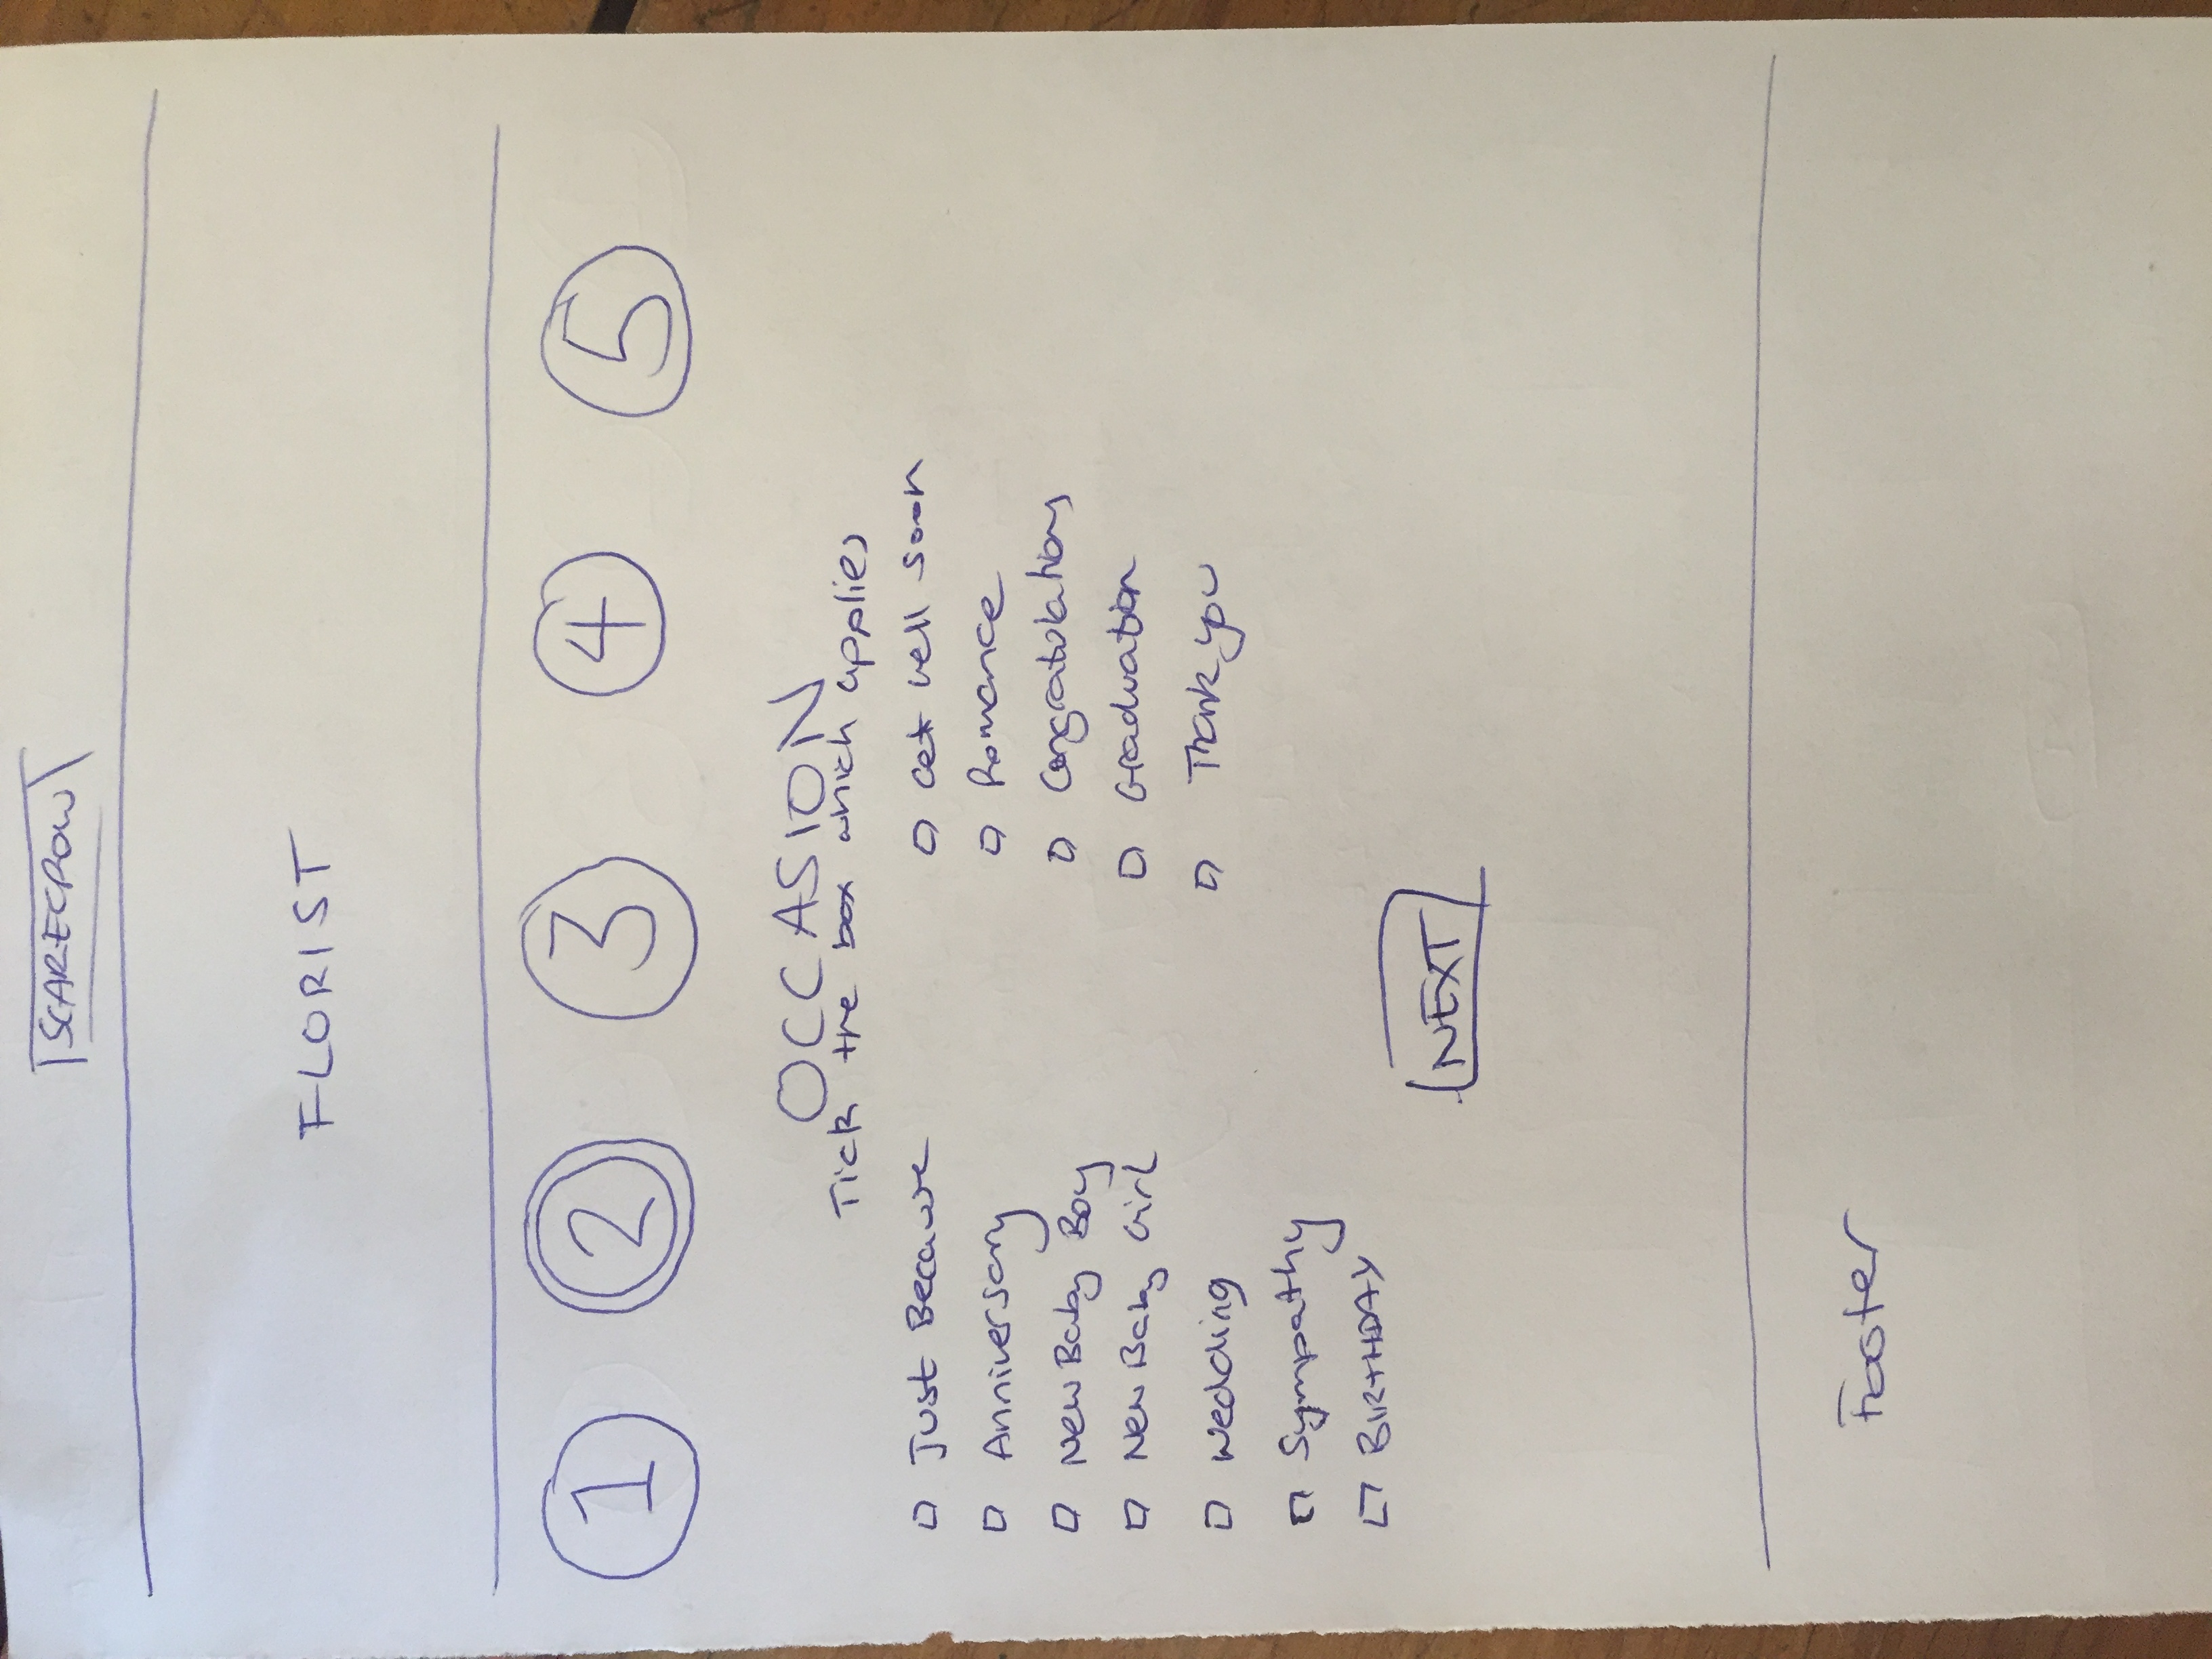 SCARECROW
FLORIST
1 2 3 4 5
OCCASION
Tick the box which applies
Just Because
Anniversary
New Baby Boy
New Baby Girl
Wedding
Sympathy
BIRTHDAY
Get well soon
Romance
Congratulations
Graduation
Thank you
NEXT
Footer